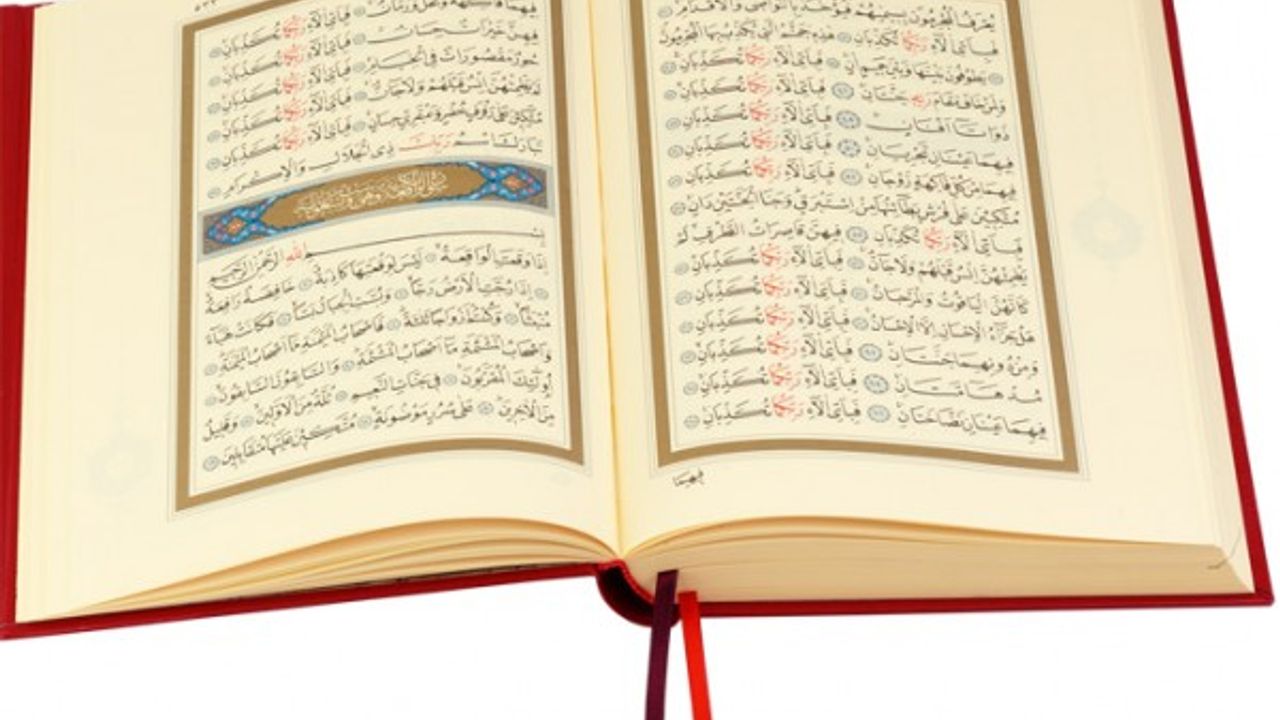 يُعْرَفُ الْمُجْرِمُونَ بِسِيمٰيهُمْ فَيُؤْخَذُ بِالنَّوَاصِي وَالْاَقْدَامِ
فَبِاَيِّ اٰلَاءِ رَبِّكُمَا تُكَذِّبَانِ هٰذِهِ جَهَنَّمُ الَّتِي يُكَذِّبُ بِهَا الْمُجْرِمُونَ
يَطُوفُونَ بَيْنَهَا وَبَيْنَ حَمِيمٍ اٰنٍ فَبِاَيِّ اٰلَاءِ رَبِّكُمَا تُكَذِّبَانِ
وَلِمَنْ خَافَ مَقَامَ رَبِّهِ جَنَّتَانِ فَبِاَيِّ اٰلَاءِ رَبِّكُمَا تُكَذِّبَانِ
ذَوَاتَا اَفْنَانٍ فَبِاَيِّ اٰلَاءِ رَبِّكُمَا تُكَذِّبَانِ
فِيهِمَا عَيْنَانِ تَجْرِيَانِ فَبِاَيِّ اٰلَاءِ رَبِّكُمَا تُكَذِّبَانِ
فِيهِمَا مِنْ كُلِّ فَاكِهَةٍ زَوْجَانِ فَبِاَيِّ اٰلَاءِ رَبِّكُمَا تُكَذِّبَانِ
مُتَّكِئِينَ عَلٰى فُرُشٍ بَطَائِنُهَا مِنْ اِسْتَبْرَقٍ وَجَنَا الْجَنَّتَيْنِ دَانٍ
فَبِاَيِّ اٰلَاءِ رَبِّكُمَا تُكَذِّبَانِ فِيهِنَّ قَاصِرَاتُ الطَّرْفِ لَمْ
يَطْمِثْهُنَّ اِنْسٌ قَبْلَهُمْ وَلَا جَانٌّ فَبِاَيِّ اٰلَاءِ رَبِّكُمَا تُكَذِّبَانِ
كَاَنَّهُنَّ الْيَاقُوتُ وَالْمَرْجَانُ فَبِاَيِّ اٰلَاءِ رَبِّكُمَا تُكَذِّبَانِ
هَلْ جَزَاءُ الْاِحْسَانِ اِلَّا الْاِحْسَانُ فَبِاَيِّ اٰلَاءِ رَبِّكُمَا تُكَذِّبَانِ
وَمِنْ دُونِهِمَا جَنَّتَانِ فَبِاَيِّ اٰلَاءِ رَبِّكُمَا تُكَذِّبَانِ
مُدْهَامَّتَانِ فَبِاَيِّ اٰلَاءِ رَبِّكُمَا تُكَذِّبَانِ
فِيهِمَا عَيْنَانِ نَضَّاخَتَانِ فَبِاَيِّ اٰلَاءِ رَبِّكُمَا تُكَذِّبَانِ
فِيهِمَا
فِيهِمَا فَاكِهَةٌ وَنَخْلٌ وَرُمَّانٌ فَبِاَيِّ اٰلَاءِ رَبِّكُمَا تُكَذِّبَانِ
فِيهِنَّ خَيْرَاتٌ حِسَانٌ فَبِاَيِّ اٰلَاءِ رَبِّكُمَا تُكَذِّبَانِ
حُورٌ مَقْصُورَاتٌ فِي الْخِيَامِ فَبِاَيِّ اٰلَاءِ رَبِّكُمَا تُكَذِّبَانِ
لَمْ يَطْمِثْهُنَّ اِنْسٌ قَبْلَهُمْ وَلَا جَانٌّ فَبِاَيِّ اٰلَاءِ رَبِّكُمَا تُكَذِّبَانِ
مُتَّكِئِينَ عَلٰى رَفْرَفٍ خُضْرٍ وَعَبْقَرِيٍّ حِسَانٍ فَبِاَيِّ اٰلَاءِ رَبِّكُمَا تُكَذِّبَانِ
تَبَارَكَ اسْمُ رَبِّكَ ذِي الْجَلَالِ وَالْاِكْرَامِ
بِسْمِ اللهِ الرَّحْمٰنِ الرَّحِيمِ
اِذَا وَقَعَتِ الْوَاقِعَةُ لَيْسَ لِوَقْعَتِهَا كَاذِبَةٌ خَافِضَةٌ رَافِعَةٌ
اِذَا رُجَّتِ الْاَرْضُ رَجًّا وَبُسَّتِ الْجِبَالُ بَسًّا فَكَانَتْ هَبَاءً
مُنْبَثًّا وَكُنْتُمْ اَزْوَاجًا ثَلٰثَةً فَاَصْحَابُ الْمَيْمَنَةِ مَا اَصْحَابُ الْمَيْمَنَةِ
وَاَصْحَابُ الْمَشْئَمَةِ مَا اَصْحَابُ الْمَشْئَمَةِ وَالسَّابِقُونَ السَّابِقُونَ
اُولٰئِكَ الْمُقَرَّبُونَ فِي جَنَّاتِ النَّعِيمِ ثُلَّةٌ مِنَ الْاَوَّلِينَ وَقَلِيلٌ
مِنَ الْاٰخِرِينَ عَلٰى سُرُرٍ مَوْضُونَةٍ مُتَّكِئِينَ عَلَيْهَا مُتَقَابِلِينَ